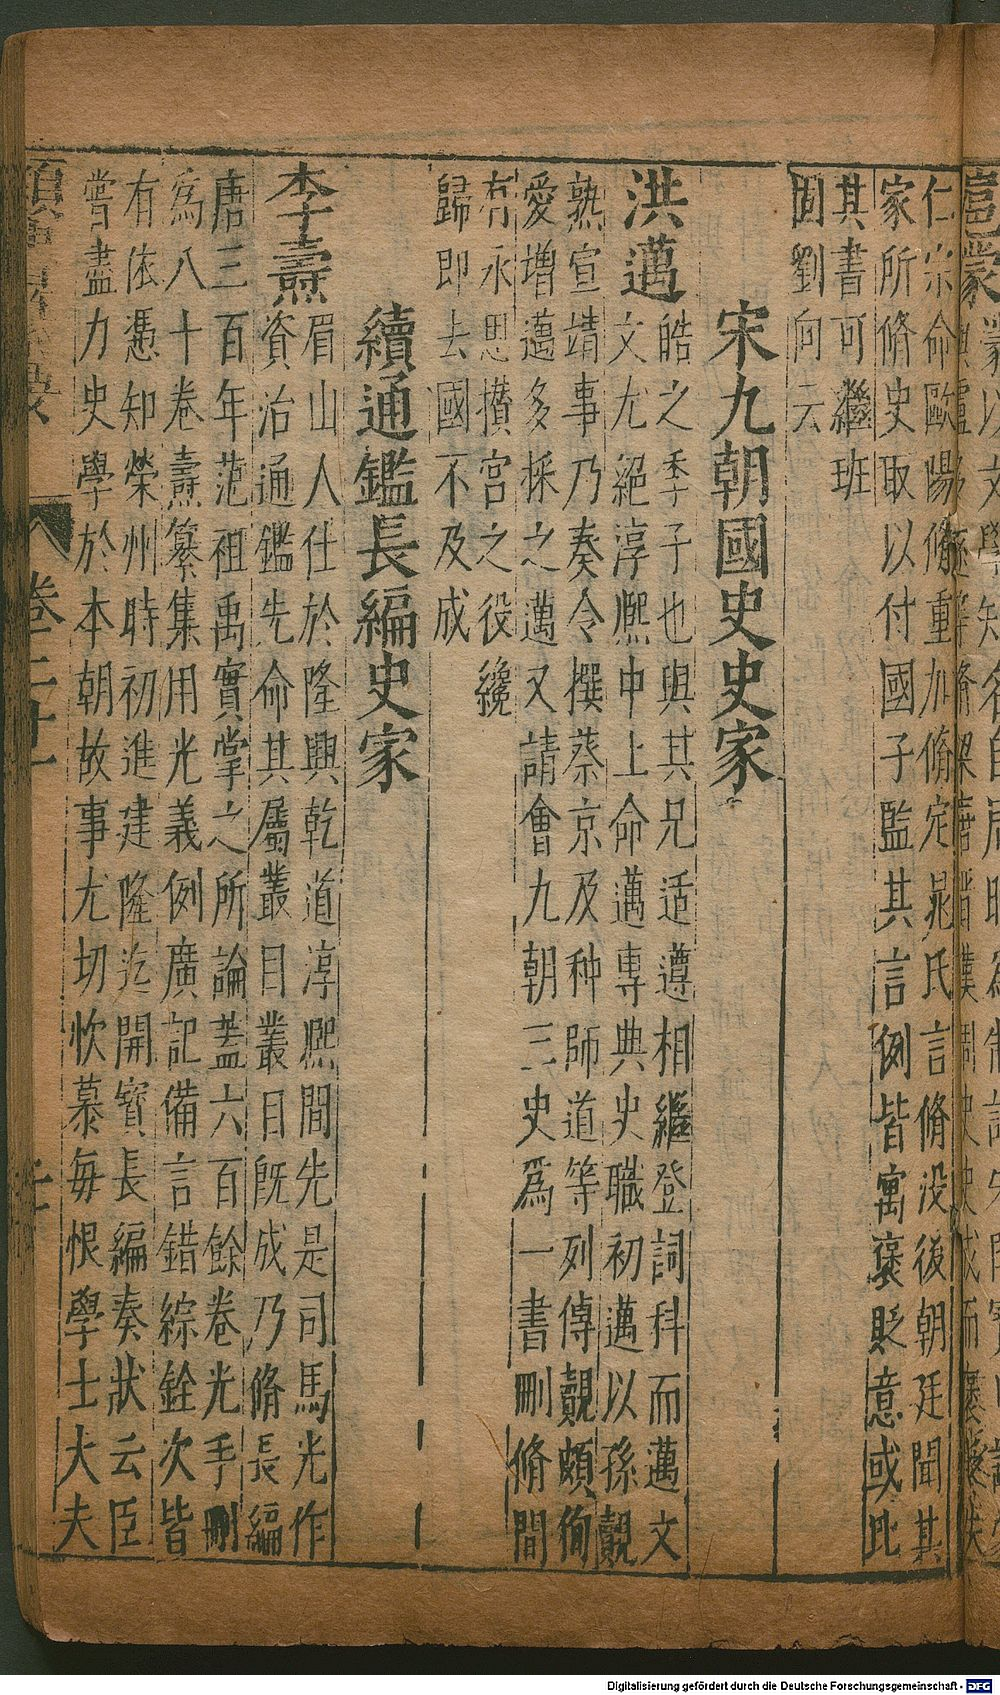 仁宗命歐陽脩重加脩定晁氏言脩没後朝廷聞其
家所脩史取以付國子監其言例皆寓褒貶意或比
其書可繼班
固劉向云
宋九朝國史史家
洪邁
皓之季子也與其兄适遵相繼登詞科而邁文
文尤絕淳熙中上命邁專典史職初邁以孫覿
熟宣靖事乃奏令撰蔡京及种師道等列傳覿頗徇
愛增邁多採之邁又請會九朝三史爲一書刪脩間
有永思攢宮之役纔
歸即去國不及成
續通鑑長編史家
李燾
眉山人仕於隆興乾道淳熙間先是司馬光作
資治通鑑先命其屬叢目叢目既成乃脩長編
唐三百年范祖禹實掌之所論蓋六百餘卷光手刪
爲八十卷燾纂集用光義例廣記備言錯綜銓次皆
有依憑知榮州時初進建隆迄開寳長編奏狀云臣
嘗盡力史學於本朝故事尤切忺慕每恨學士大夫
卷二十一
Digitalisierung gefördert durch die Deutsche Forschungsgemeinschaft - DFG